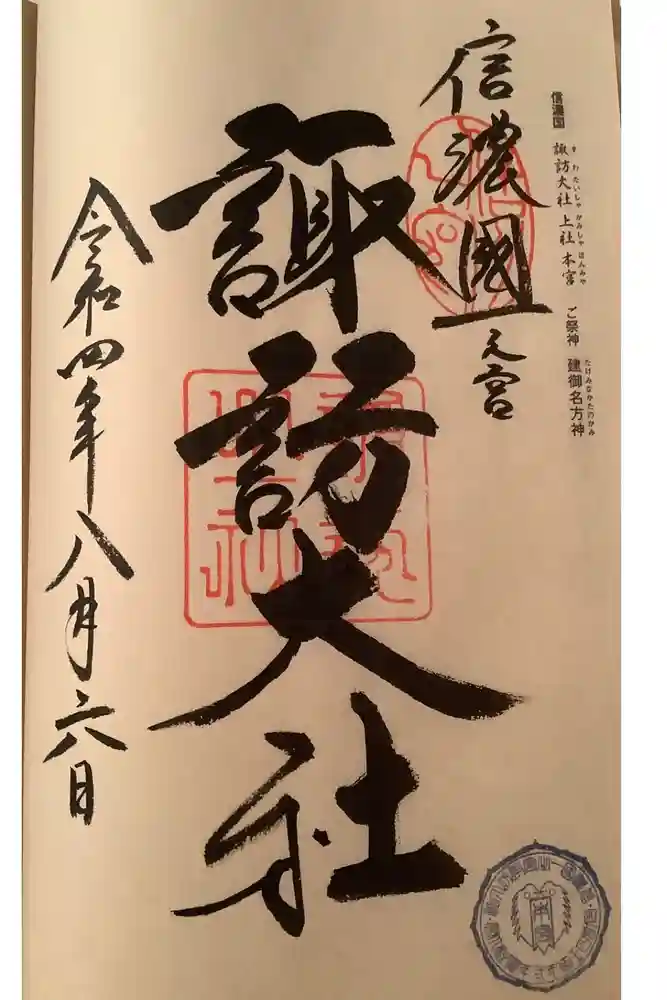 信濃国 諏訪大社 上社 本宮 ご祭神 建御名方神
すわたいしゃ かみしゃ ほんみや たけみなかたのかみ
信濃國一之宮
諏訪大社
令和四年八月六日